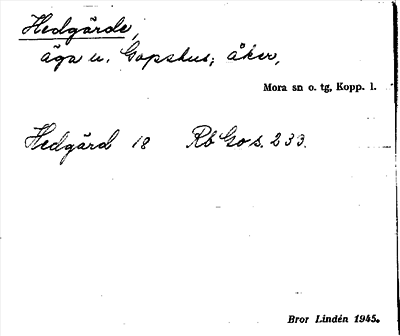 Hedgärde,
äga u. Gopshus; åker,
Mora sn o. tg, Kopp. l.
Hedgärd 18 Rb Gos. 233.
Bror Lindén 1945.